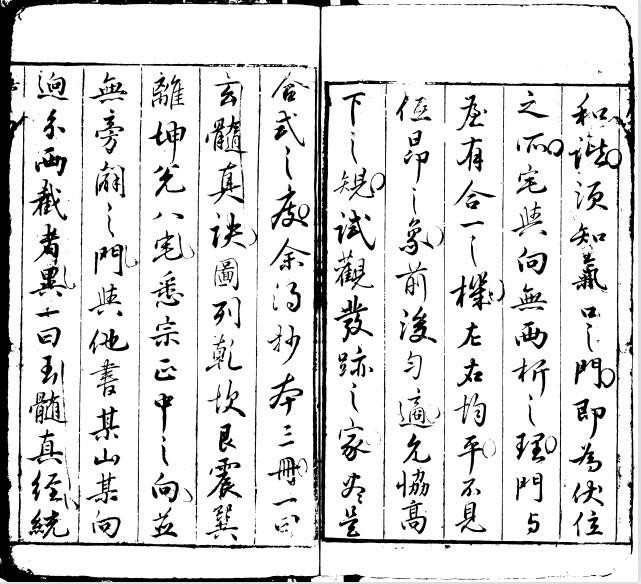 和諧須知氣口之門即為伏位
之所宅與向無兩析之理門与
屋有合一之機左右均平不見
低昂之象前後勻適允恊高
下之規試觀發跡之家盡是
合式之度余得抄本三冊一曰
玄髓真訣圖列乾坎艮震巽
離坤兌八宅悉宗正中之向並
無旁開之門與他書某山某向
迥分兩截者異一曰玉髓真經統